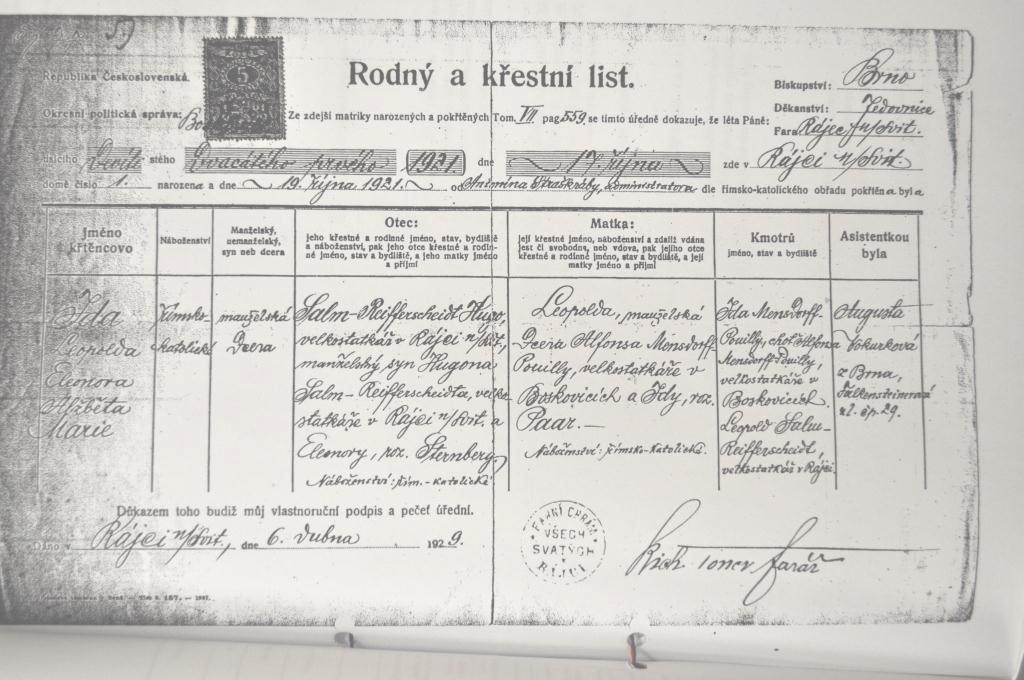 59
5
Republika Československá.
Rodný a křestní list.
Biskupství: Brno
Okresní politická správa:
Ze zdejší matriky narozených a pokřtěných Tom. VII pag 559, se tímto úředně dokazuje, že léta Páně:
Děkanství: Jedovnice
Fara Rájec n/Svit.
tisícího Devíti stého Dvacátého prvého 1921. dne 17 října zde v Rájci n/Svit.
domě číslo 1. narozena a dne 19. října 1921. od administrátora dle římsko-katolického obřadu pokřtěna byla
Jméno křtěncovo
Náboženství
Manželský, nemanželský, syn neb dcera
Otec:
jeho křestné a rodinné jméno, stav, bydliště
a náboženství, pak jeho otce křestné a rodin-
né jméno, stav a bydliště, a jeho matky jméno
a příjmí
Matka:
její křestné jméno, náboženství a zdaliž vdána
jest či svobodna, neb vdova, pak jejího otce
křestné a rodinné jméno, stav a bydliště, a její
matky jméno a příjmí
Kmotrů
jméno, stav a bydliště
Asistentkou byla
Ida
Leopolda
Eleonora
Alžběta
Marie
římsko-
katolické
manželská
Dcera
Salm-Reifferscheidt Hugo,
velkostatkář v Rájci n/Svit.,
manželský syn Hugona
Salm-Reifferscheidta, velko-
statkáře v Rájci n/Svit. a
Eleonory, roz. Sternberg.
Náboženství: řím.-katolické
Leopolda, manželská
Dcera Alfonsa Mensdorff-
Pouilly, velkostatkáře v
Boskovicích a Idy, roz.
Paar.—
Náboženství: římsko-katolické.
Ida Mensdorff-
Pouilly, choť Alfonsa
Mensdorff-Pouilly,
velkostatkáře v
Boskovicích.
Leopold Salm-
Reifferscheidt,
velkostatkář v Rájci.
Augusta
z Brna,
čp. 29.
Důkazem toho budiž můj vlastnoruční podpis a pečeť úřední.
Dáno v Rájci n/Svit., dne 6. dubna 1929.
FARNÍ CHRÁM
VŠECH
SVATÝCH
RÁJCI
farář